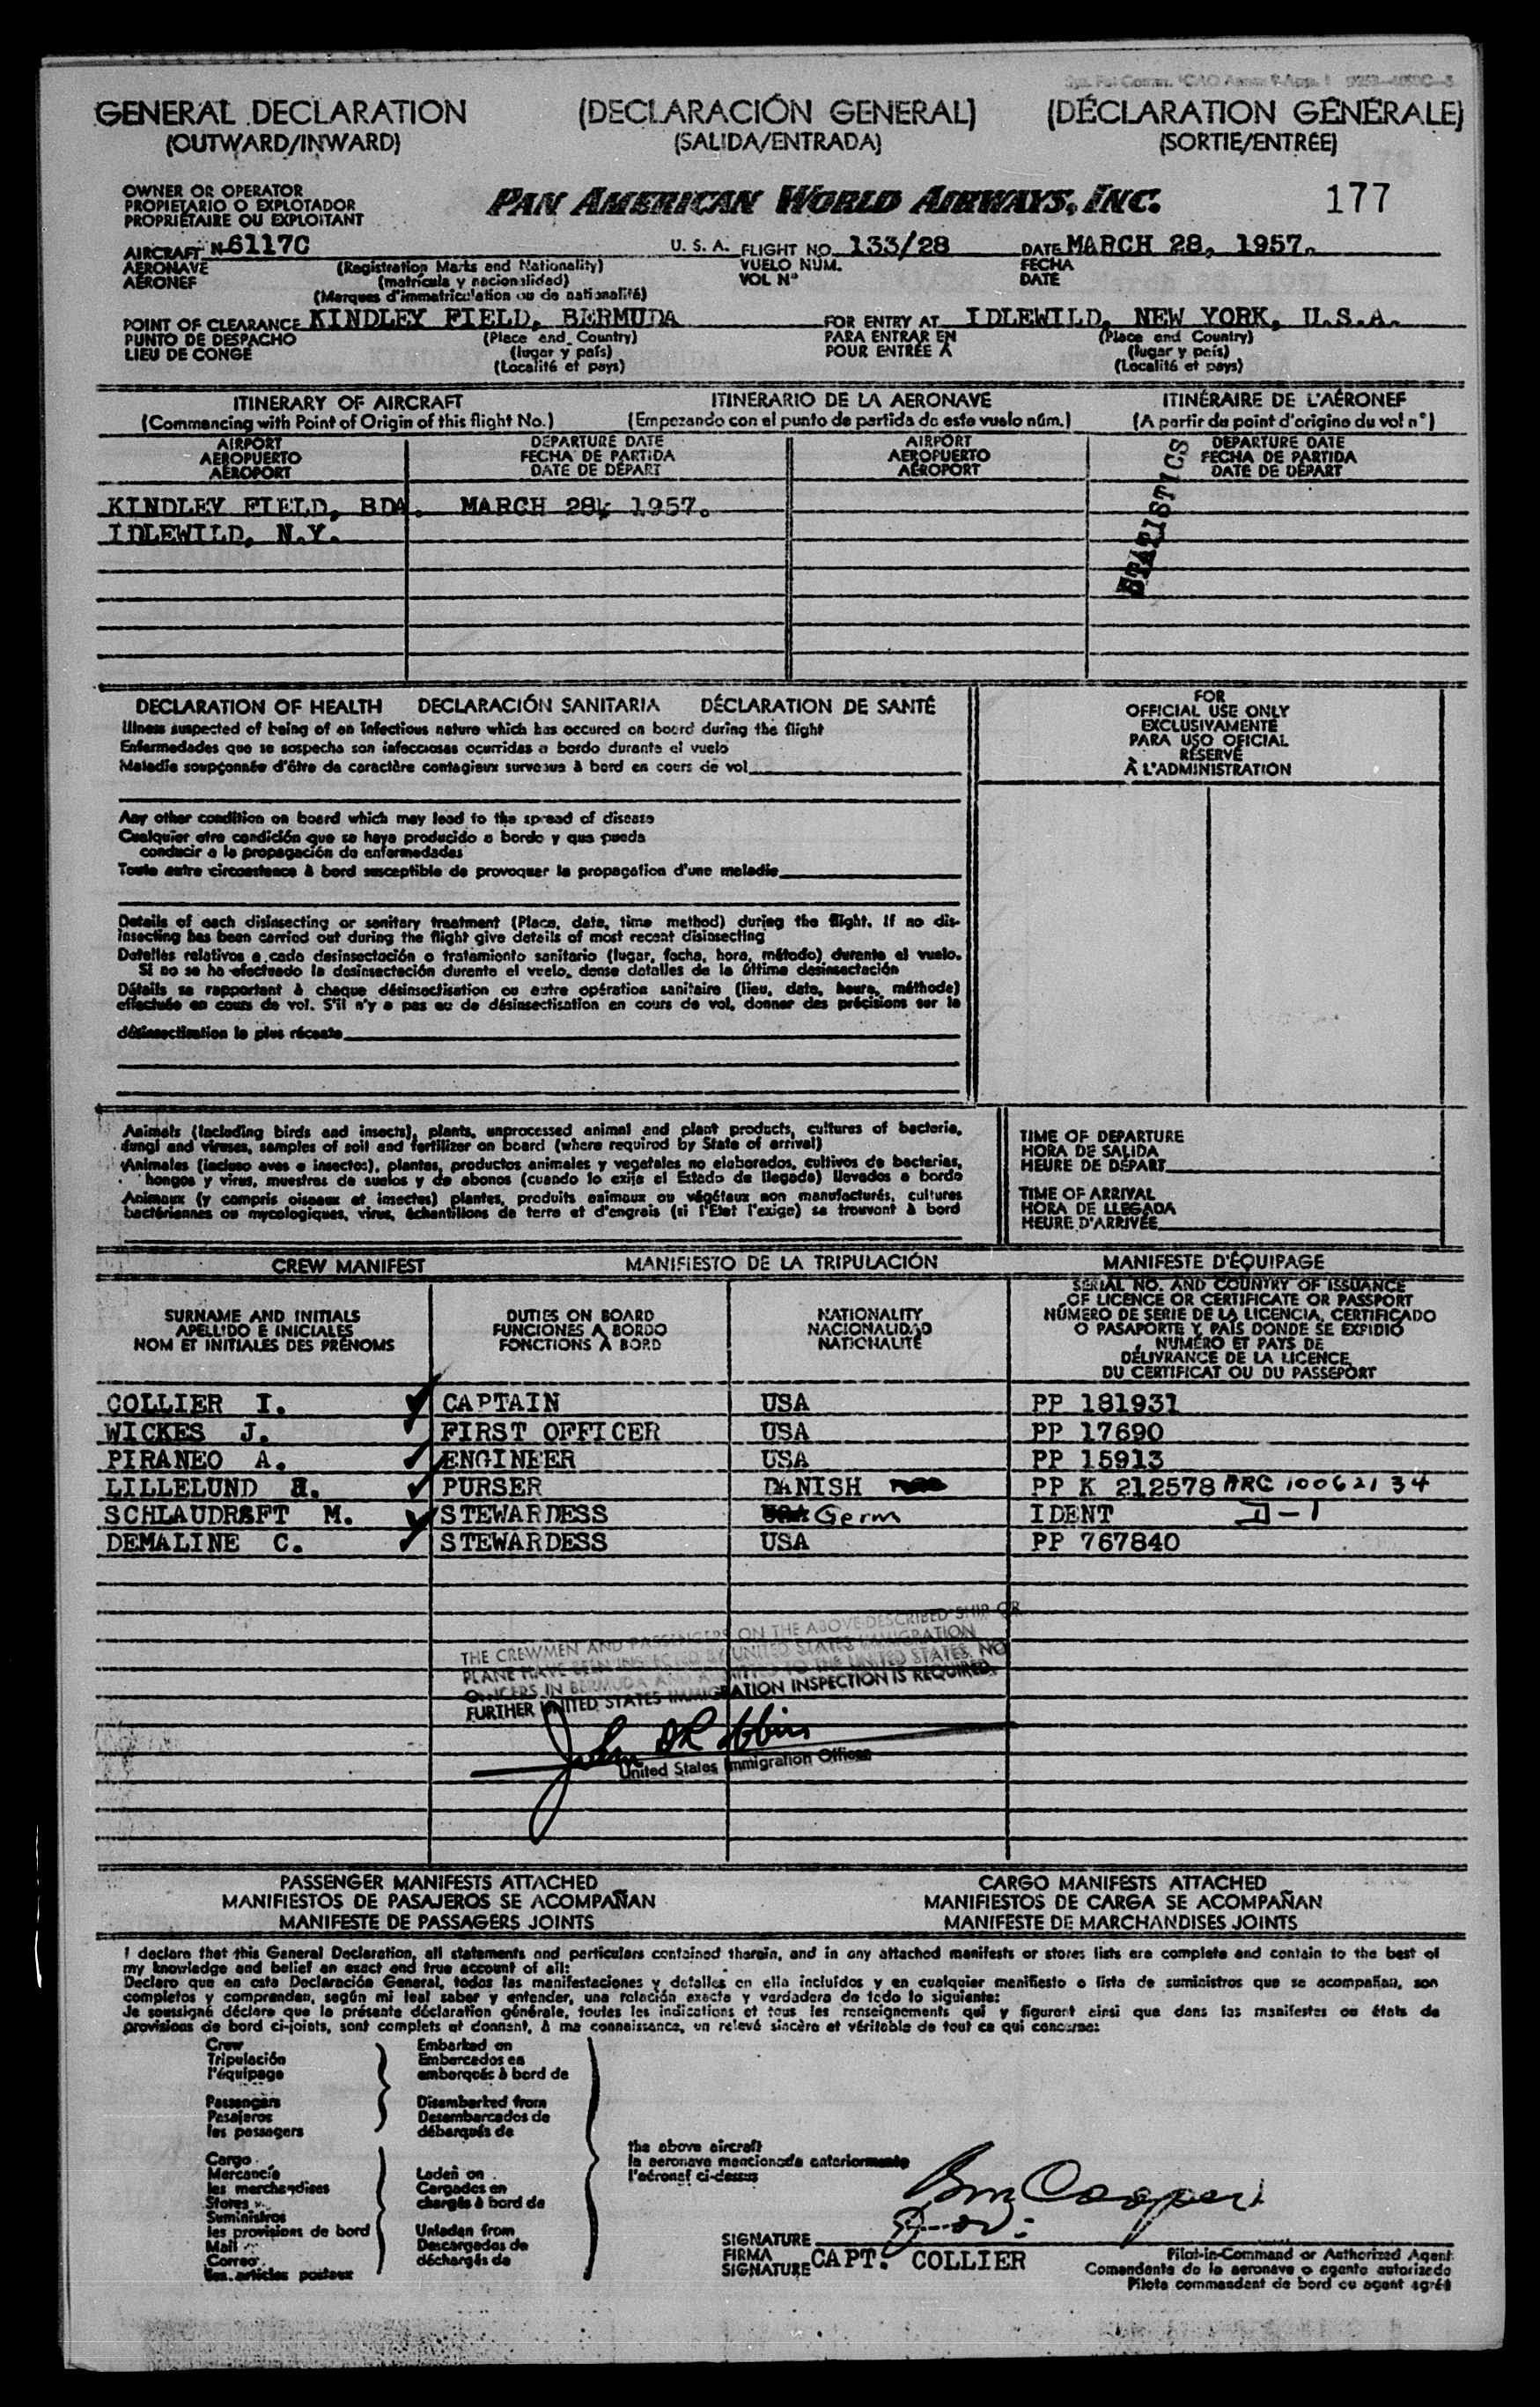 GENERAL DECLARATION (DECLARACIÓN GENERAL) (DÉCLARATION GÉNÉRALE)
(OUTWARD/INWARD) (SALIDA/ENTRADA) (SORTIE/ENTRÉE)
OWNER OR OPERATOR
PROPIETARIO O EXPLOTADOR
PROPRIÉTAIRE OU EXPLOITANT
PAN AMERICAN WORLD AIRWAYS, INC. 177
AIRCRAFT N-6117C U. S. A. FLIGHT NO. 133/28 DATE MARCH 28, 1957.
AERONAVE (Registration Marks and Nationality) VUELO NÚM. FECHA
AÉRONEF (matrícula y nacionalidad) VOL Nº DATE
(Marques d'immatriculation ou de nationalité)
POINT OF CLEARANCE KINDLEY FIELD, BERMUDA FOR ENTRY AT IDLEWILD, NEW YORK, U.S.A.
PUNTO DE DESPACHO (Place and Country) PARA ENTRAR EN (Place and Country)
LIEU DE CONGÉ (lugar y país) POUR ENTRÉE À (lugar y país)
(Localité et pays) (Localité et pays)
ITINERARY OF AIRCRAFT ITINERARIO DE LA AERONAVE ITINÉRAIRE DE L'AÉRONEF
(Commencing with Point of Origin of this flight No.) (Empezando con el punto de partida de este vuelo núm.) (A partir du point d'origine du vol nº)
AIRPORT DEPARTURE DATE AIRPORT DEPARTURE DATE
AEROPUERTO FECHA DE PARTIDA AEROPUERTO FECHA DE PARTIDA
AÉROPORT DATE DE DÉPART AÉROPORT DATE DE DÉPART
STATISTICS
KINDLEY FIELD, BDA. MARCH 28, 1957.
IDLEWILD, N.Y.
DECLARATION OF HEALTH DECLARACIÓN SANITARIA DÉCLARATION DE SANTÉ
Illness suspected of being of an infectious nature which has occured on board during the flight
Enfermedades que se sospecha son infecciosas ocurridas a bordo durante el vuelo
Maladie soupçonnée d'être de caractère contagieux survenue à bord en cours de vol
FOR
OFFICIAL USE ONLY
EXCLUSIVAMENTE
PARA USO OFICIAL
RÉSERVÉ
À L'ADMINISTRATION
Any other condition on board which may lead to the spread of disease
Cualquier otra condición que se haya producido a bordo y que pueda
conducir a la propagación de enfermedades
Toute autre circonstance à bord susceptible de provoquer la propagation d'une maladie
Details of each disinsecting or sanitary treatment (Place, date, time method) during the flight. If no dis-
insecting has been carried out during the flight give details of most recent disinsecting
Detalles relativos a cada desinsectación o tratamiento sanitario (lugar, fecha, hora, método) durante el vuelo.
Si no se ha efectuado la desinsectación durante el vuelo, dense detalles de la última desinsectación
Détails se rapportant à chaque désinsectisation ou autre opération sanitaire (lieu, date, heure, méthode)
effectuée en cours de vol. S'il n'y a pas eu de désinsectisation en cours de vol, donner des précisions sur la
désinsectisation la plus récente
Animals (including birds and insects), plants, unprocessed animal and plant products, cultures of bacteria,
fungi and viruses, samples of soil and fertilizer on board (where required by State of arrival)
Animales (incluso aves e insectos), plantas, productos animales y vegetales no elaborados, cultivos de bacterias,
hongos y virus, muestras de suelos y de abonos (cuando lo exija el Estado de llegada) llevados a bordo
Animaux (y compris oiseaux et insectes) plantes, produits animaux ou végétaux non manufacturés, cultures
bactériennes ou mycologiques, virus, échantillons de terre et d'engrais (si l'Etat l'exige) se trouvant à bord
TIME OF DEPARTURE
HORA DE SALIDA
HEURE DE DÉPART
TIME OF ARRIVAL
HORA DE LLEGADA
HEURE D'ARRIVÉE
CREW MANIFEST MANIFIESTO DE LA TRIPULACIÓN MANIFESTE D'ÉQUIPAGE
SURNAME AND INITIALS
APELLIDO E INICIALES
NOM ET INITIALES DES PRÉNOMS
DUTIES ON BOARD
FUNCIONES A BORDO
FONCTIONS À BORD
NATIONALITY
NACIONALIDAD
NATIONALITÉ
SERIAL NO. AND COUNTRY OF ISSUANCE
OF LICENCE OR CERTIFICATE OR PASSPORT
NÚMERO DE SERIE DE LA LICENCIA, CERTIFICADO
O PASAPORTE Y PAÍS DONDE SE EXPIDIÓ
NUMÉRO ET PAYS DE
DÉLIVRANCE DE LA LICENCE
DU CERTIFICAT OU DU PASSEPORT
COLLIER I. CAPTAIN USA PP 181931
WICKES J. FIRST OFFICER USA PP 17690
PIRANEO A. ENGINEER USA PP 15913
LILLELUND H. PURSER DANISH PP K 212578 ARC 10062134
SCHLAUDRAFT M. STEWARDESS USA Germ IDENT I-1
DEMALINE C. STEWARDESS USA PP 767840
THE CREWMEN AND PASSENGERS ON THE ABOVE-DESCRIBED SHIP OR
PLANE HAVE BEEN INSPECTED BY UNITED STATES IMMIGRATION
OFFICERS IN BERMUDA AND ADMITTED TO THE UNITED STATES. NO
FURTHER UNITED STATES IMMIGRATION INSPECTION IS REQUIRED.
United States Immigration Officer
PASSENGER MANIFESTS ATTACHED CARGO MANIFESTS ATTACHED
MANIFIESTOS DE PASAJEROS SE ACOMPAÑAN MANIFIESTOS DE CARGA SE ACOMPAÑAN
MANIFESTE DE PASSAGERS JOINTS MANIFESTE DE MARCHANDISES JOINTS
I declare that this General Declaration, all statements and particulars contained therein, and in any attached manifests or stores lists are complete and contain to the best of
my knowledge and belief an exact and true account of all:
Declaro que en esta Declaración General, todos las manifestaciones y detalles en ella incluídos y en cualquier manifiesto o lista de suministros que se acompañan, son
completos y comprenden, según mi leal saber y entender, una relación exacta y verdadera de todo lo siguiente:
Je soussigné déclare que la présente déclaration générale, toutes les indications et tous les renseignements qui y figurent ainsi que dans les manifestes ou états de
provisions de bord ci-joints, sont complets et donnent, à ma connaissance, un relevé sincère et véritable de tout ce qui concerne:
Crew Embarked on
Tripulación Embarcados en
l'équipage embarqués à bord de
Passengers Disembarked from
Pasajeros Desembarcados de
les passagers débarqués de
the above aircraft
la aeronave mencionada anteriormente
l'aéronef ci-dessus
Cargo
Mercancía Laden on
les marchandises Cargados en
Stores chargés à bord de
Suministros
les provisions de bord Unladen from
Mail Descargados de
Correo déchargés de
les articles postaux
Cooper
SIGNATURE
FIRMA
SIGNATURE CAPT. COLLIER
Pilot-in-Command or Authorized Agent
Comandante de la aeronave o agente autorizado
Pilote commandant de bord ou agent agréé